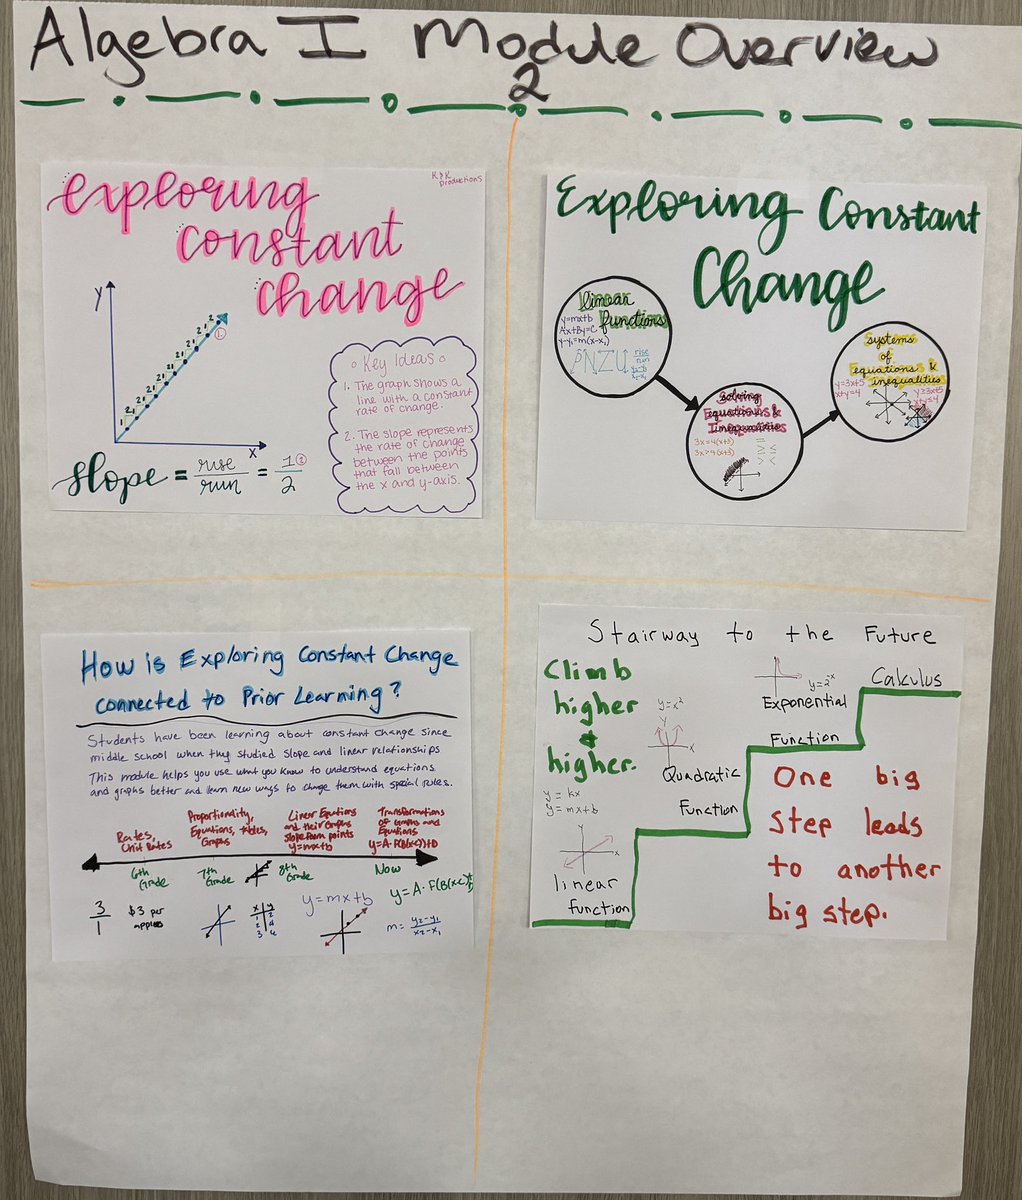 Algebra I Module Overview
2
exploring
constant
change
K&K
productions
y
x
2 1 2 1 2 1 2 1 2 1 2 1 2 1
slope = rise/run = 1/2
Key Ideas
1. The graph shows a
line with a constant
rate of change.
2. The slope represents
the rate of change
between the points
that fall between
the x and y-axis.
Exploring Constant
Change
linear
functions
y=mx+b
Ax+By=C
y-y₁=m(x-x₁)
PNZU
rise
run
y₂-y₁
x₂-x₁
Solving
Equations &
Inequalities
3x=4(x+3)
3x>4(x+3)
systems
of
equations &
inequalities
y=3x+5
x+y=4
y≥3x+5
x+y≤4
How is Exploring Constant Change
connected to Prior Learning?
Students have been learning about constant change since
middle school when they studied slope and linear relationships
This module helps you use what you know to understand equations
and graphs better and learn new ways to change them with special rules.
Rates,
Unit Rates
Proportionality,
Equations, tables,
Graphs
Linear Equations
and their Graphs
slope from points
y=mx+b
Transformations
of Graphs and
Equations
y=A·F(B(x-C))+D
6th
Grade
7th
Grade
8th
Grade
Now
3/1
$3 per
apples
x y
1 2
2 4
y=mx+b
m = y₂-y₁/x₂-x₁
Stairway to the Future
Climb
higher
&
higher.
y = kx
y = mx+b
y
x
linear
function
y=x²
y
x
Quadratic
Function
y=2ˣ
Exponential
Function
Calculus
One big
step leads
to another
big step.